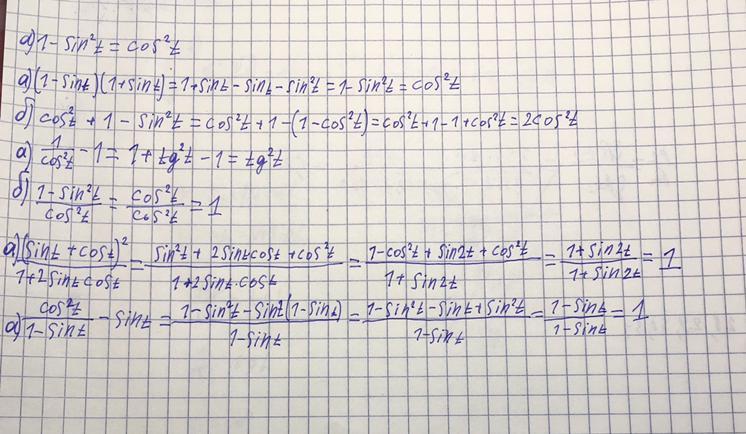 а) 1 - sin²t = cos²t
а) (1-sint)(1+sint) = 1+sint - sint - sin²t = 1 - sin²t = cos²t
б) cos²t + 1 - sin²t = cos²t + 1 - (1-cos²t) = cos²t + 1 - 1 + cos²t = 2cos²t
а) 1/cos²t - 1 = 1 + tg²t - 1 = tg²t
б) (1-sin²t)/cos²t = cos²t/cos²t = 1
а) (sint + cost)²/(1+2sint cost) = (sin²t + 2sint cost + cos²t)/(1+2sint·cost) = (1-cos²t + sin2t + cos²t)/(1+sin2t) = (1+sin2t)/(1+sin2t) = 1
а) cos²t/(1-sint) - sint = (1-sin²t - sint(1-sint))/(1-sint) = (1-sin²t - sint + sin²t)/(1-sint) = (1-sint)/(1-sint) = 1